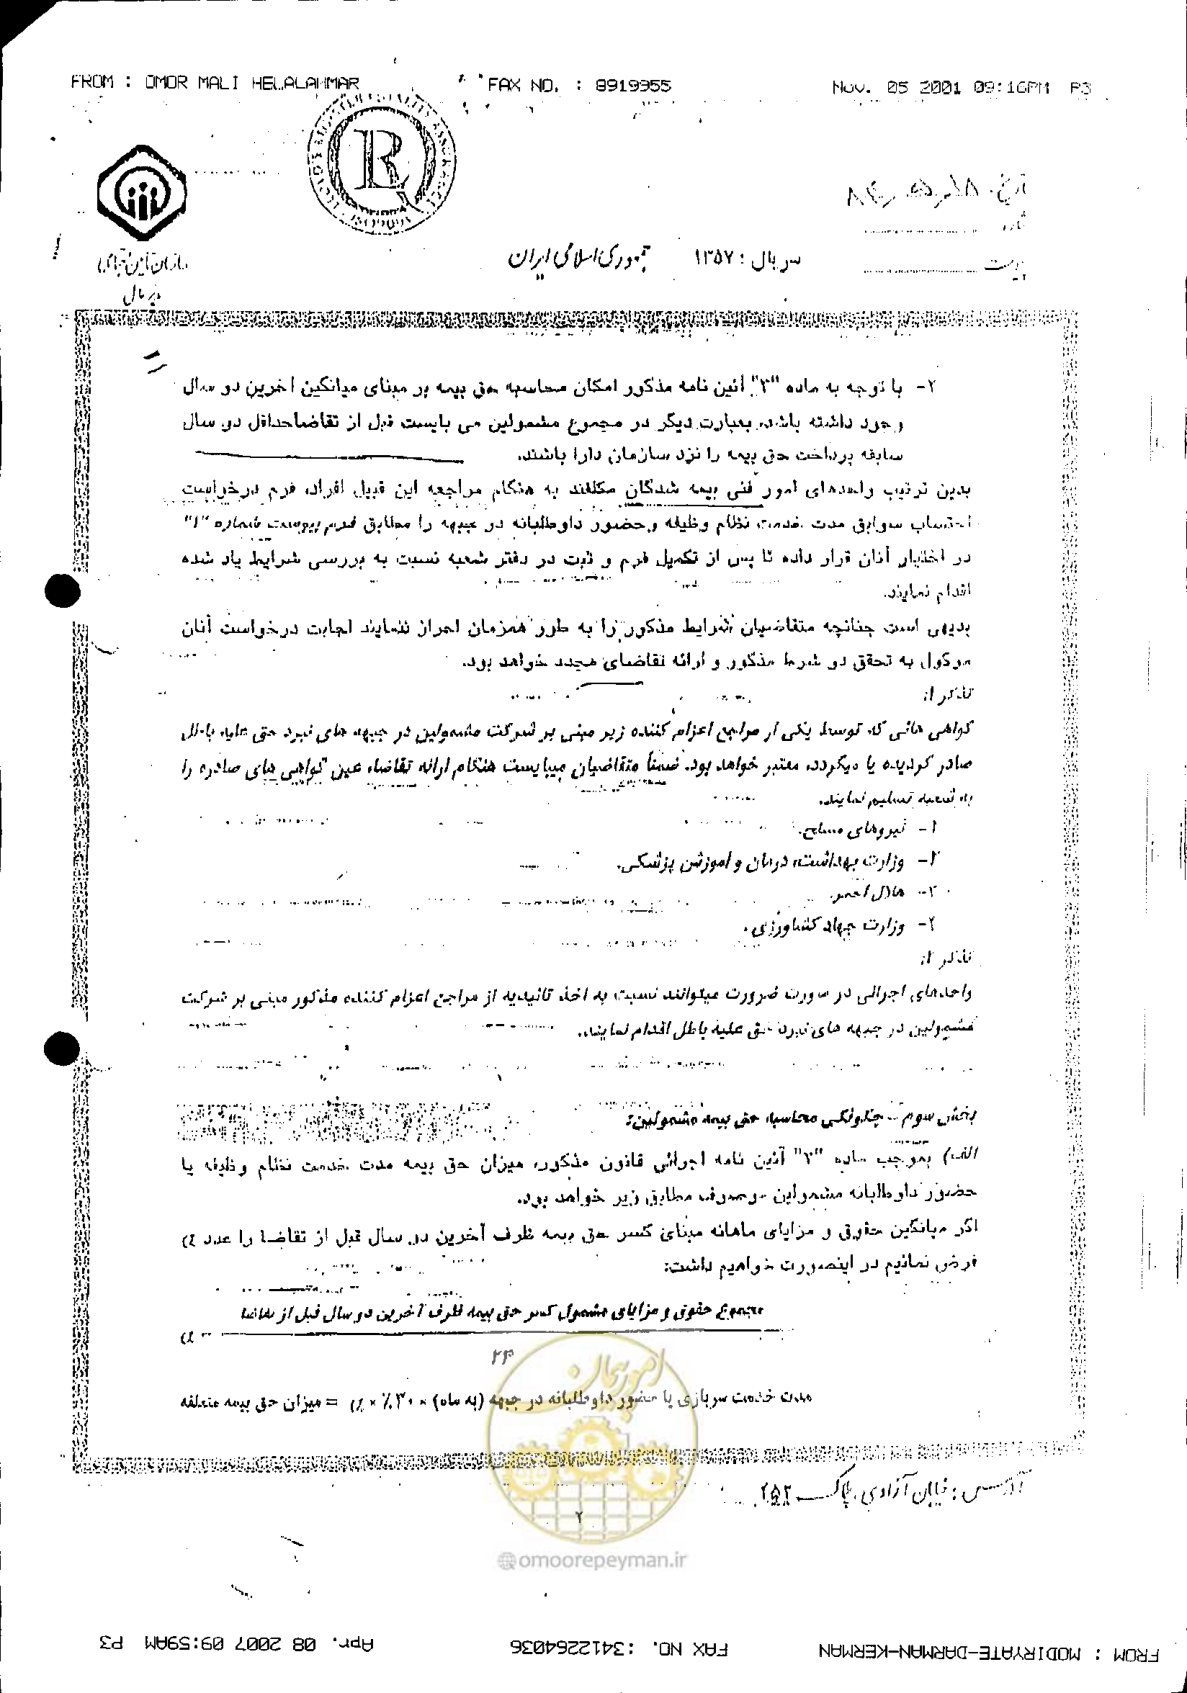 FROM : OMOR MALI HELALAHMAR FAX NO. : 8919955 Nov. 05 2001 09:16PM P3
تاریخ
جمهوری اسلامی ایران سریال : ۱۳۵۷
سازمان تأمین اجتماعی
۲- با توجه به ماده "۳" آئین نامه مذکور امکان محاسبه حق بیمه بر مبنای میانگین آخرین دو سال
وجود داشته باشد، بعبارت دیگر در مجموع مشمولین می بایست قبل از تقاضا حداقل دو سال
سابقه پرداخت حق بیمه را نزد سازمان دارا باشند.
بدین ترتیب واحدهای امور فنی بیمه شدگان مکلفند به هنگام مراجعه این قبیل افراد، فرم درخواست
احتساب سوابق مدت خدمت نظام وظیفه و حضور داوطلبانه در جبهه را مطابق فرم پیوست شماره "۱"
در اختیار آنان قرار داده تا پس از تکمیل فرم و ثبت در دفتر شعبه نسبت به بررسی شرایط یاد شده
اقدام نمایند.
بدیهی است چنانچه متقاضیان شرایط مذکور را به طور همزمان احراز ننمایند اجابت درخواست آنان
موکول به تحقق دو شرط مذکور و ارائه تقاضای مجدد خواهد بود.
تذکر ۱:
گواهی هائی که توسط یکی از مراجع اعزام کننده زیر مبنی بر شرکت مشمولین در جبهه های نبرد حق علیه باطل
صادر گردیده یا میگردد، معتبر خواهد بود. ضمناً متقاضیان میبایست هنگام ارائه تقاضا، عین گواهی های صادره را
به شعبه تسلیم نمایند.
۱- نیروهای مسلح.
۲- وزارت بهداشت، درمان و آموزش پزشکی.
۳- هلال احمر.
۴- وزارت جهاد کشاورزی.
تذکر ۲:
واحدهای اجرائی در صورت ضرورت میتوانند نسبت به اخذ تائیدیه از مراجع اعزام کننده مذکور مبنی بر شرکت
مشمولین در جبهه های نبرد حق علیه باطل اقدام نمایند.
بخش سوم - چگونگی محاسبه حق بیمه مشمولین:
الف) بموجب ماده "۳" آئین نامه اجرائی قانون مذکور، میزان حق بیمه مدت خدمت نظام وظیفه یا
حضور داوطلبانه مشمولین موصوف مطابق زیر خواهد بود.
اگر میانگین حقوق و مزایای ماهانه مبنای کسر حق بیمه ظرف آخرین دو سال قبل از تقاضا را عدد
فرض نمائیم در اینصورت خواهیم داشت:
مجموع حقوق و مزایای مشمول کسر حق بیمه ظرف آخرین دو سال قبل از تقاضا
۲۴
مدت خدمت سربازی یا حضور داوطلبانه در جبهه (به ماه) × ۳۰٪ × = میزان حق بیمه متعلقه
آدرس : خیابان آزادی، پلاک ۲۵۲
امور پیمان
۲
@omoorepeyman.ir
FROM : MODIRYATE-DARMAN-KERMAN FAX NO. : 3412264036 Apr. 08 2007 09:59AM P3